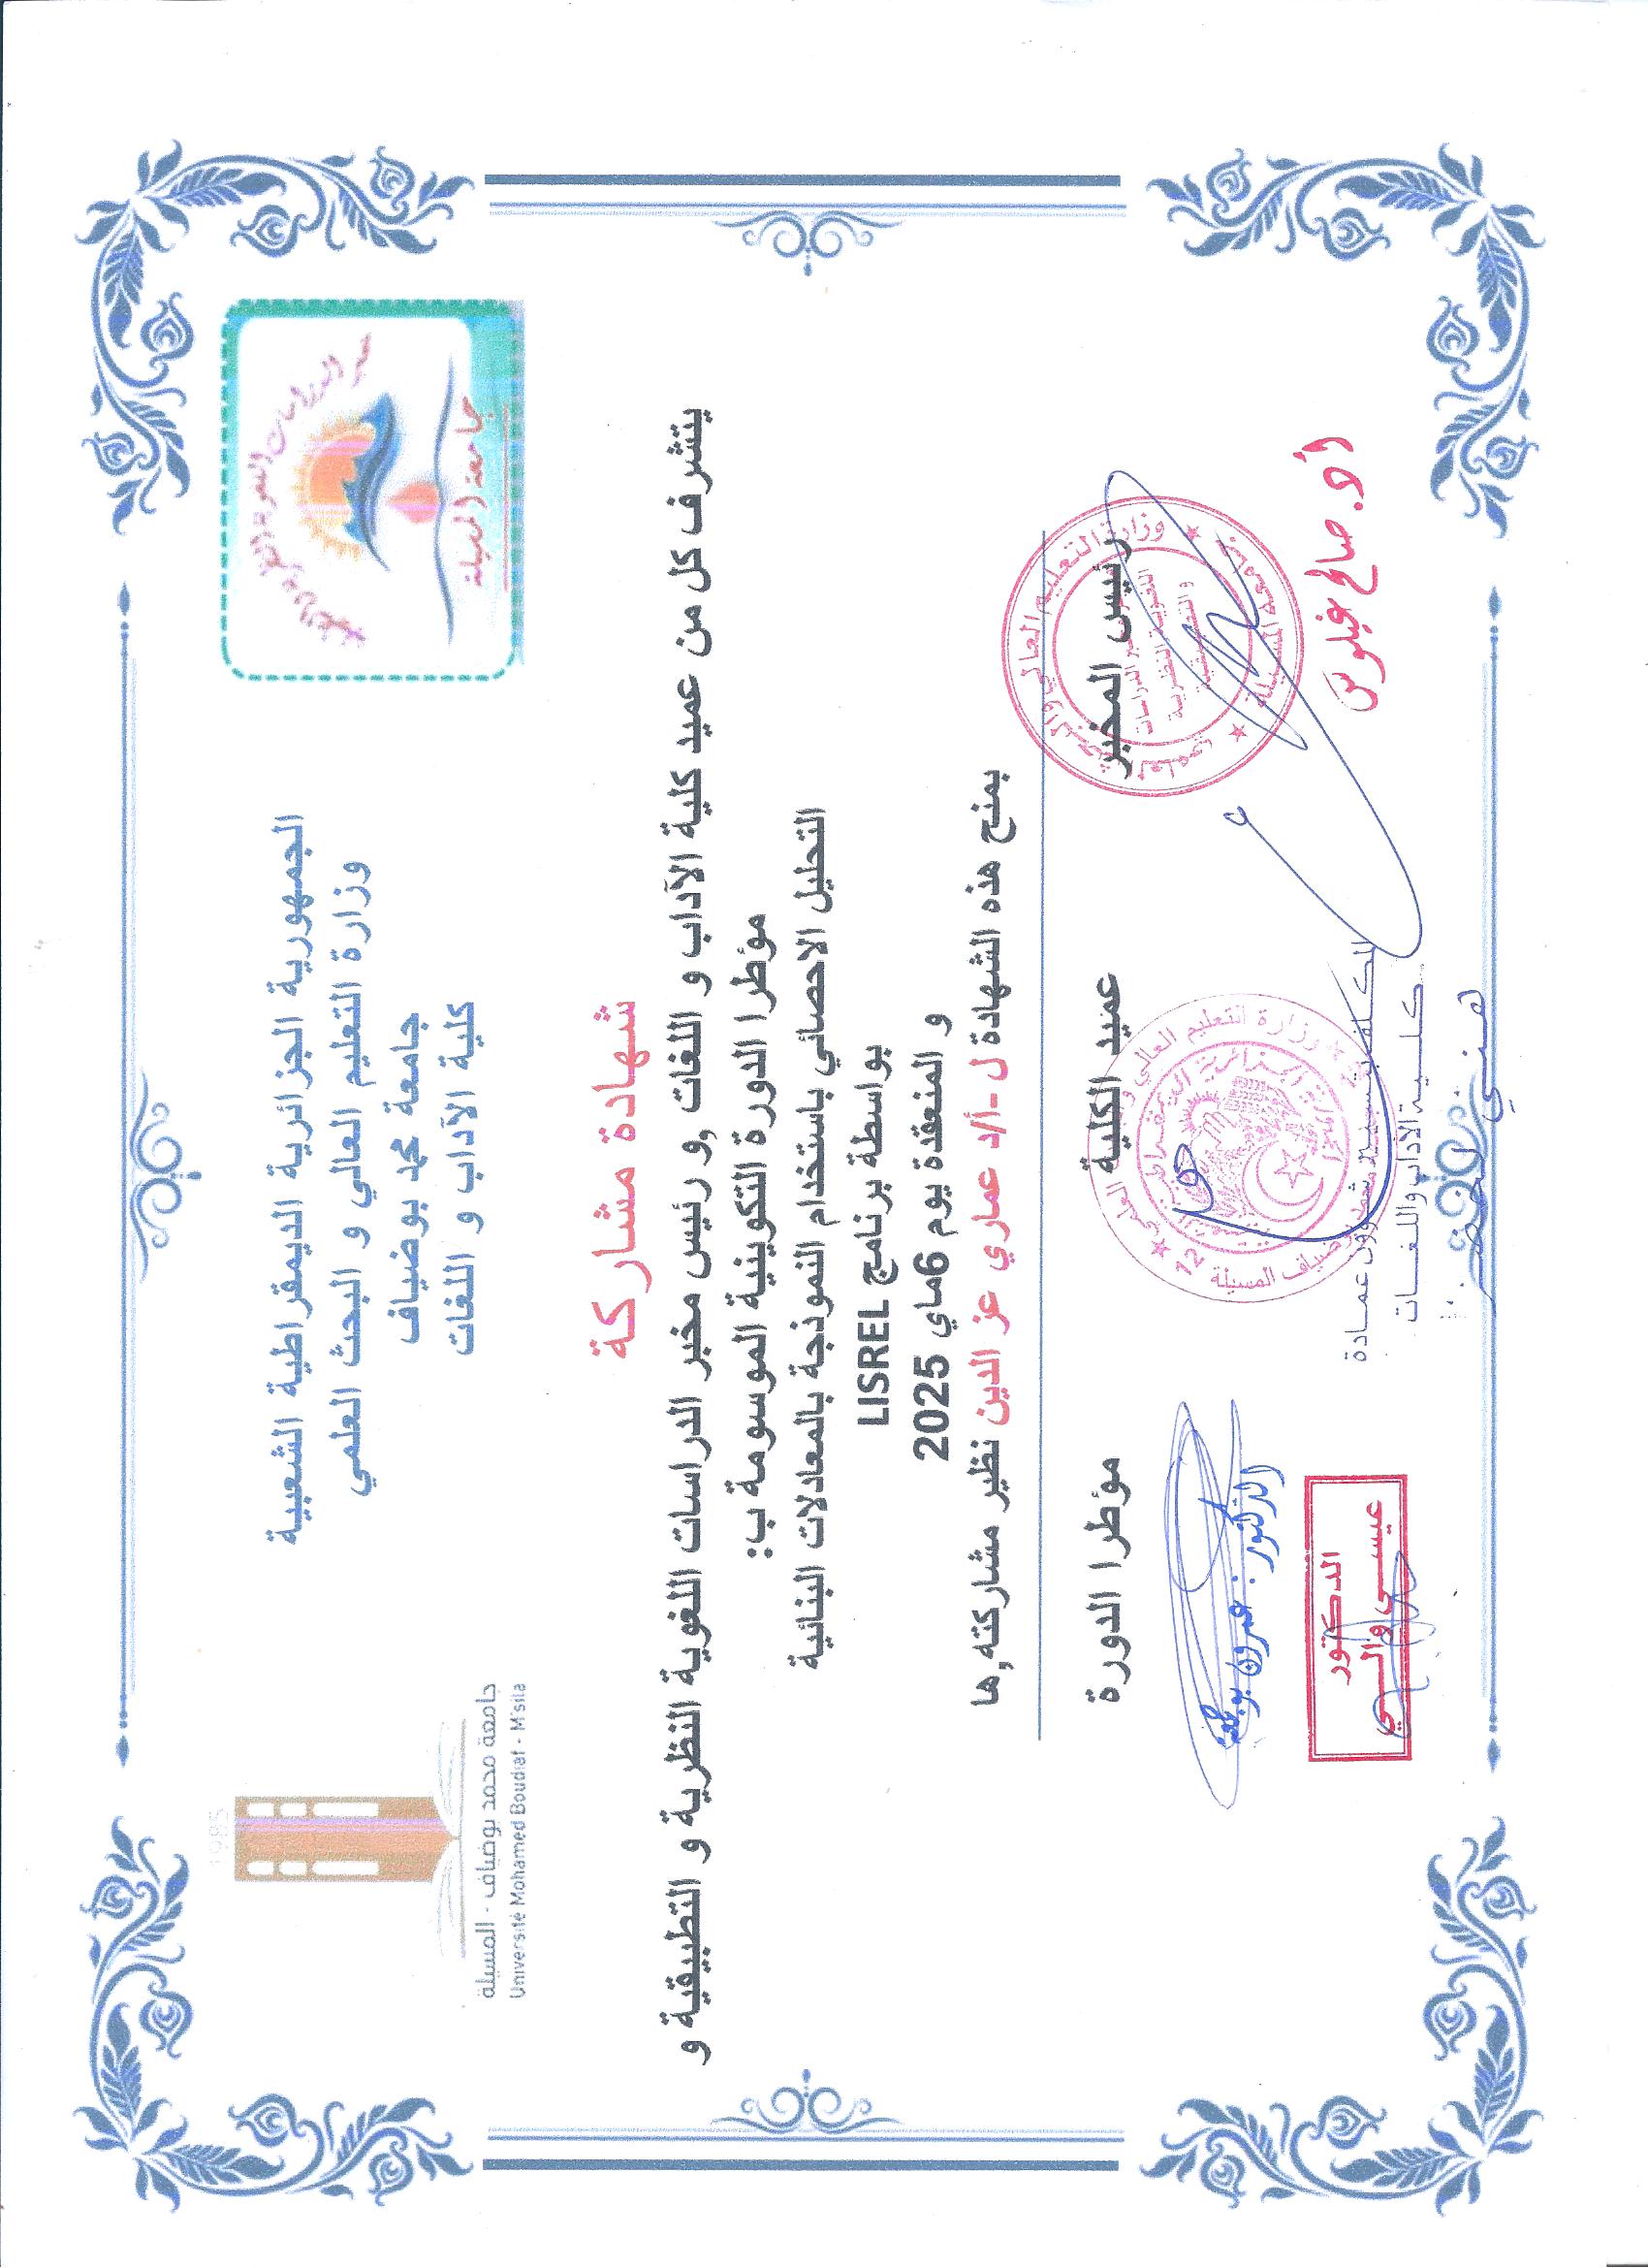 الجمهورية الجزائرية الديمقراطية الشعبية
وزارة التعليم العالي و البحث العلمي
جامعة محمد بوضياف
كلية الآداب و اللغات
جامعة المسيلة
1985
جامعة محمد بوضياف - المسيلة
Université Mohamed Boudiaf - M'sila
شهادة مشاركة
يتشرف كل من عميد كلية الآداب و اللغات ,و رئيس مخبر الدراسات اللغوية النظرية و التطبيقية و
مؤطرا الدورة التكوينية الموسومة ب:
التحليل الاحصائي باستخدام النموذجة بالمعادلات البنائية
بواسطة برنامج LISREL
و المنعقدة يوم 6ماي 2025
بمنح هذه الشهادة ل -أ/د عماري عز الدين نظير مشاركته,ها
رئيس المخبر
عميد الكلية
مؤطرا الدورة
أ.د. صالح غيلوس
كلية الآداب واللغات
الدكتور
عيسى والي